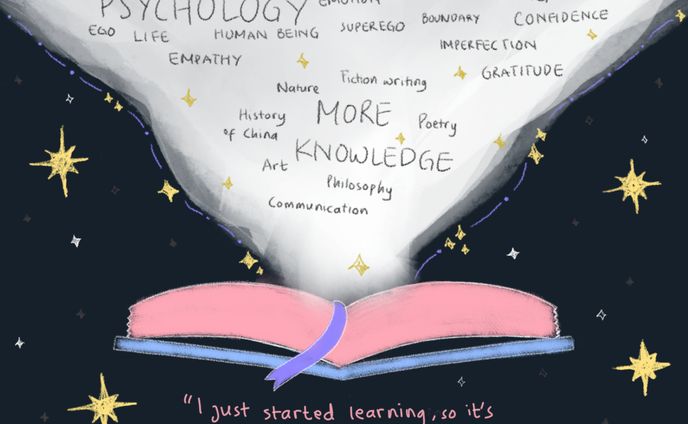 PSYCHOLOGY
EGO LIFE HUMAN BEING SUPEREGO BOUNDARY CONFIDENCE
EMPATHY IMPERFECTION
GRATITUDE
Nature Fiction writing
History MORE Poetry
of China
Art KNOWLEDGE
Philosophy
Communication
"I just started learning, so it's